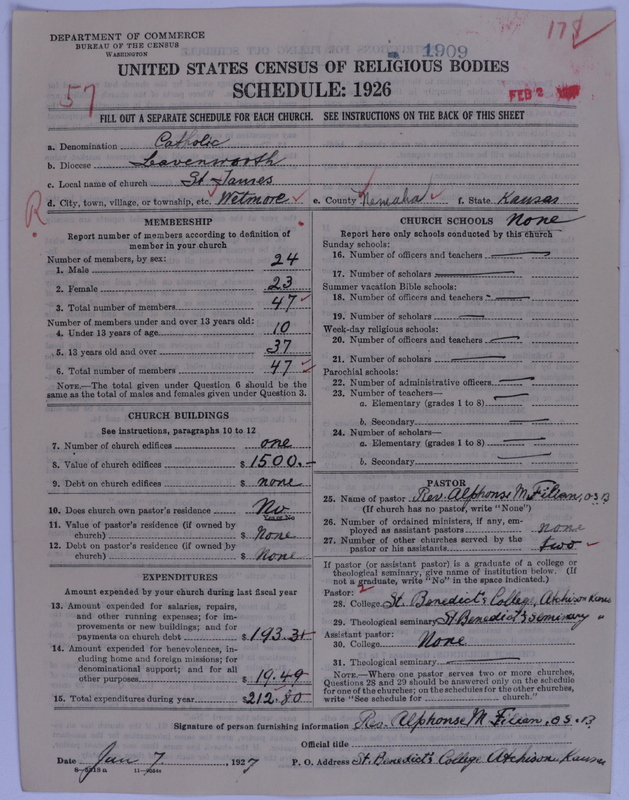 DEPARTMENT OF COMMERCE
BUREAU OF THE CENSUS
WASHINGTON
1909
178
UNITED STATES CENSUS OF RELIGIOUS BODIES
SCHEDULE: 1926
57
FEB 2
FILL OUT A SEPARATE SCHEDULE FOR EACH CHURCH. SEE INSTRUCTIONS ON THE BACK OF THIS SHEET
a. Denomination Catholic
b. Diocese Leavenworth
c. Local name of church St James
d. City, town, village, or township, etc. Wetmore e. County Nemaha f. State Kansas
R
MEMBERSHIP
Report number of members according to definition of
member in your church
Number of members, by sex:
1. Male 24
2. Female 23
3. Total number of members 47
Number of members under and over 13 years old:
4. Under 13 years of age 10
5. 13 years old and over 37
6. Total number of members 47
NOTE.—The total given under Question 6 should be the
same as the total of males and females given under Question 3.
CHURCH BUILDINGS
See instructions, paragraphs 10 to 12
7. Number of church edifices one
8. Value of church edifices $ 1500.—
9. Debt on church edifices $ none
10. Does church own pastor's residence No
Yes or No
11. Value of pastor's residence (if owned by
church) $ None
12. Debt on pastor's residence (if owned by
church) $ None
EXPENDITURES
Amount expended by your church during last fiscal year
13. Amount expended for salaries, repairs,
and other running expenses; for im-
provements or new buildings; and for
payments on church debt $ 193.31
14. Amount expended for benevolences, in-
cluding home and foreign missions; for
denominational support; and for all
other purposes $ 19.49
15. Total expenditures during year $ 212.80
CHURCH SCHOOLS None
Report here only schools conducted by this church
Sunday schools:
16. Number of officers and teachers
17. Number of scholars
Summer vacation Bible schools:
18. Number of officers and teachers
19. Number of scholars
Week-day religious schools:
20. Number of officers and teachers
21. Number of scholars
Parochial schools:
22. Number of administrative officers
23. Number of teachers—
a. Elementary (grades 1 to 8)
b. Secondary
24. Number of scholars—
a. Elementary (grades 1 to 8)
b. Secondary
PASTOR
25. Name of pastor Rev. Alphonse M Filian, O S B
(If church has no pastor, write "None")
26. Number of ordained ministers, if any, em-
ployed as assistant pastors none
27. Number of other churches served by the
pastor or his assistants two
If pastor (or assistant pastor) is a graduate of a college or
theological seminary, give name of institution below. (If
not a graduate, write "No" in the space indicated.)
Pastor: 2
28. College St. Benedict's College, Atchison Kans
29. Theological seminary St Benedict's Seminary "
Assistant pastor:
30. College None
31. Theological seminary
NOTE.—Where one pastor serves two or more churches,
Questions 28 and 29 should be answered only on the schedule
for one of the churches; on the schedules for the other churches,
write "See schedule for church."
Signature of person furnishing information Rev. Alphonse M Filian, O.S.B
Official title
Date Jan 7, 1927 P. O. Address St. Benedict's College Atchison, Kansas